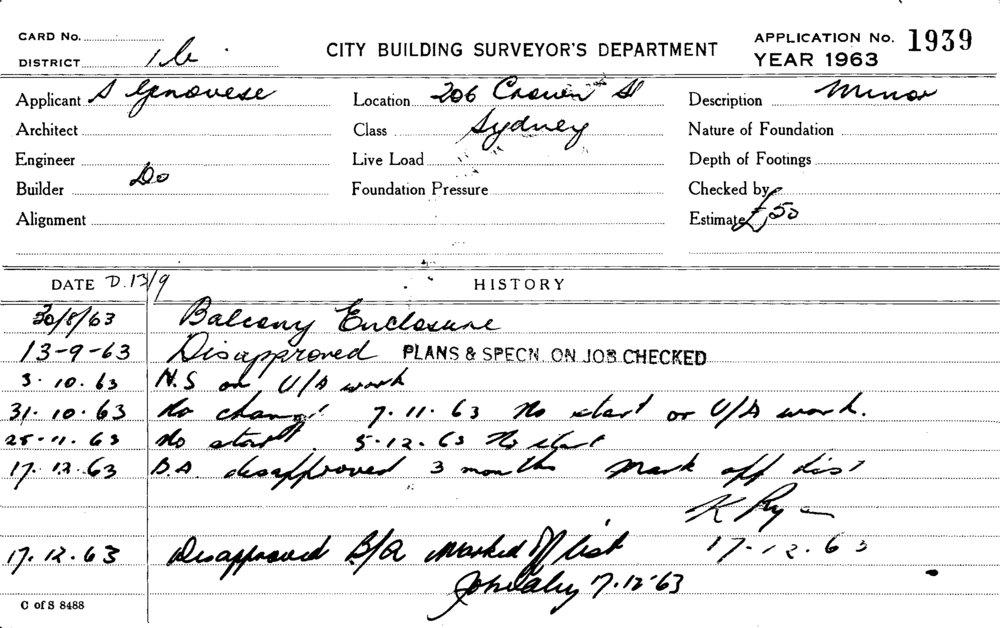 CARD No.
CITY BUILDING SURVEYOR'S DEPARTMENT
APPLICATION No. 1939
DISTRICT
YEAR 1963
Applicant S Genovese
Location 206 Crown St
Description Minor
Architect
Class Sydney
Nature of Foundation
Engineer
Live Load
Depth of Footings
Builder Do
Foundation Pressure
Checked by
Alignment
Estimate £50
DATE D.13/9 HISTORY
30/8/63 Balcony Enclosure
13-9-63 Disapproved PLANS & SPECN. ON JOB CHECKED
3.10.63 N.S on U/A work
31.10.63 No change 7.11.63 No start or U/A work.
25.11.63 No start 5.12.63 No start
17.12.63 B.A. disapproved 3 months Mark off list
K Ryan
17.12.63 Disapproved B/A Marked off list 17.12.63
17-12-63
C of S 8488